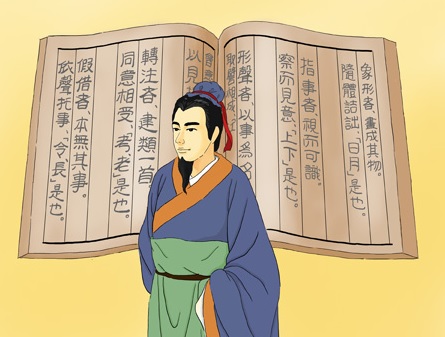 象形者，畫成其物。
隨體詰詘、「日月」是也。
指事者，視而可識。
察而見意、「上下」是也。
形聲者、以事為名
取譬相成
會意
以見
轉注者、建類一首
同意相受、「考、老」是也。
假借者、本無其事。
依聲托事、「令、長」是也。